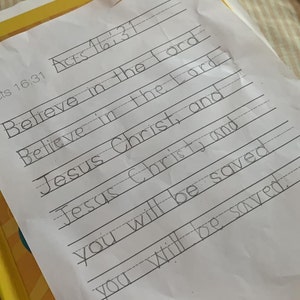 Acts 16:31
cts 16:31
Believe in the Lord
Believe in the Lord
Jesus Christ, and
Jesus Christ, and
you will be saved
you will be saved.